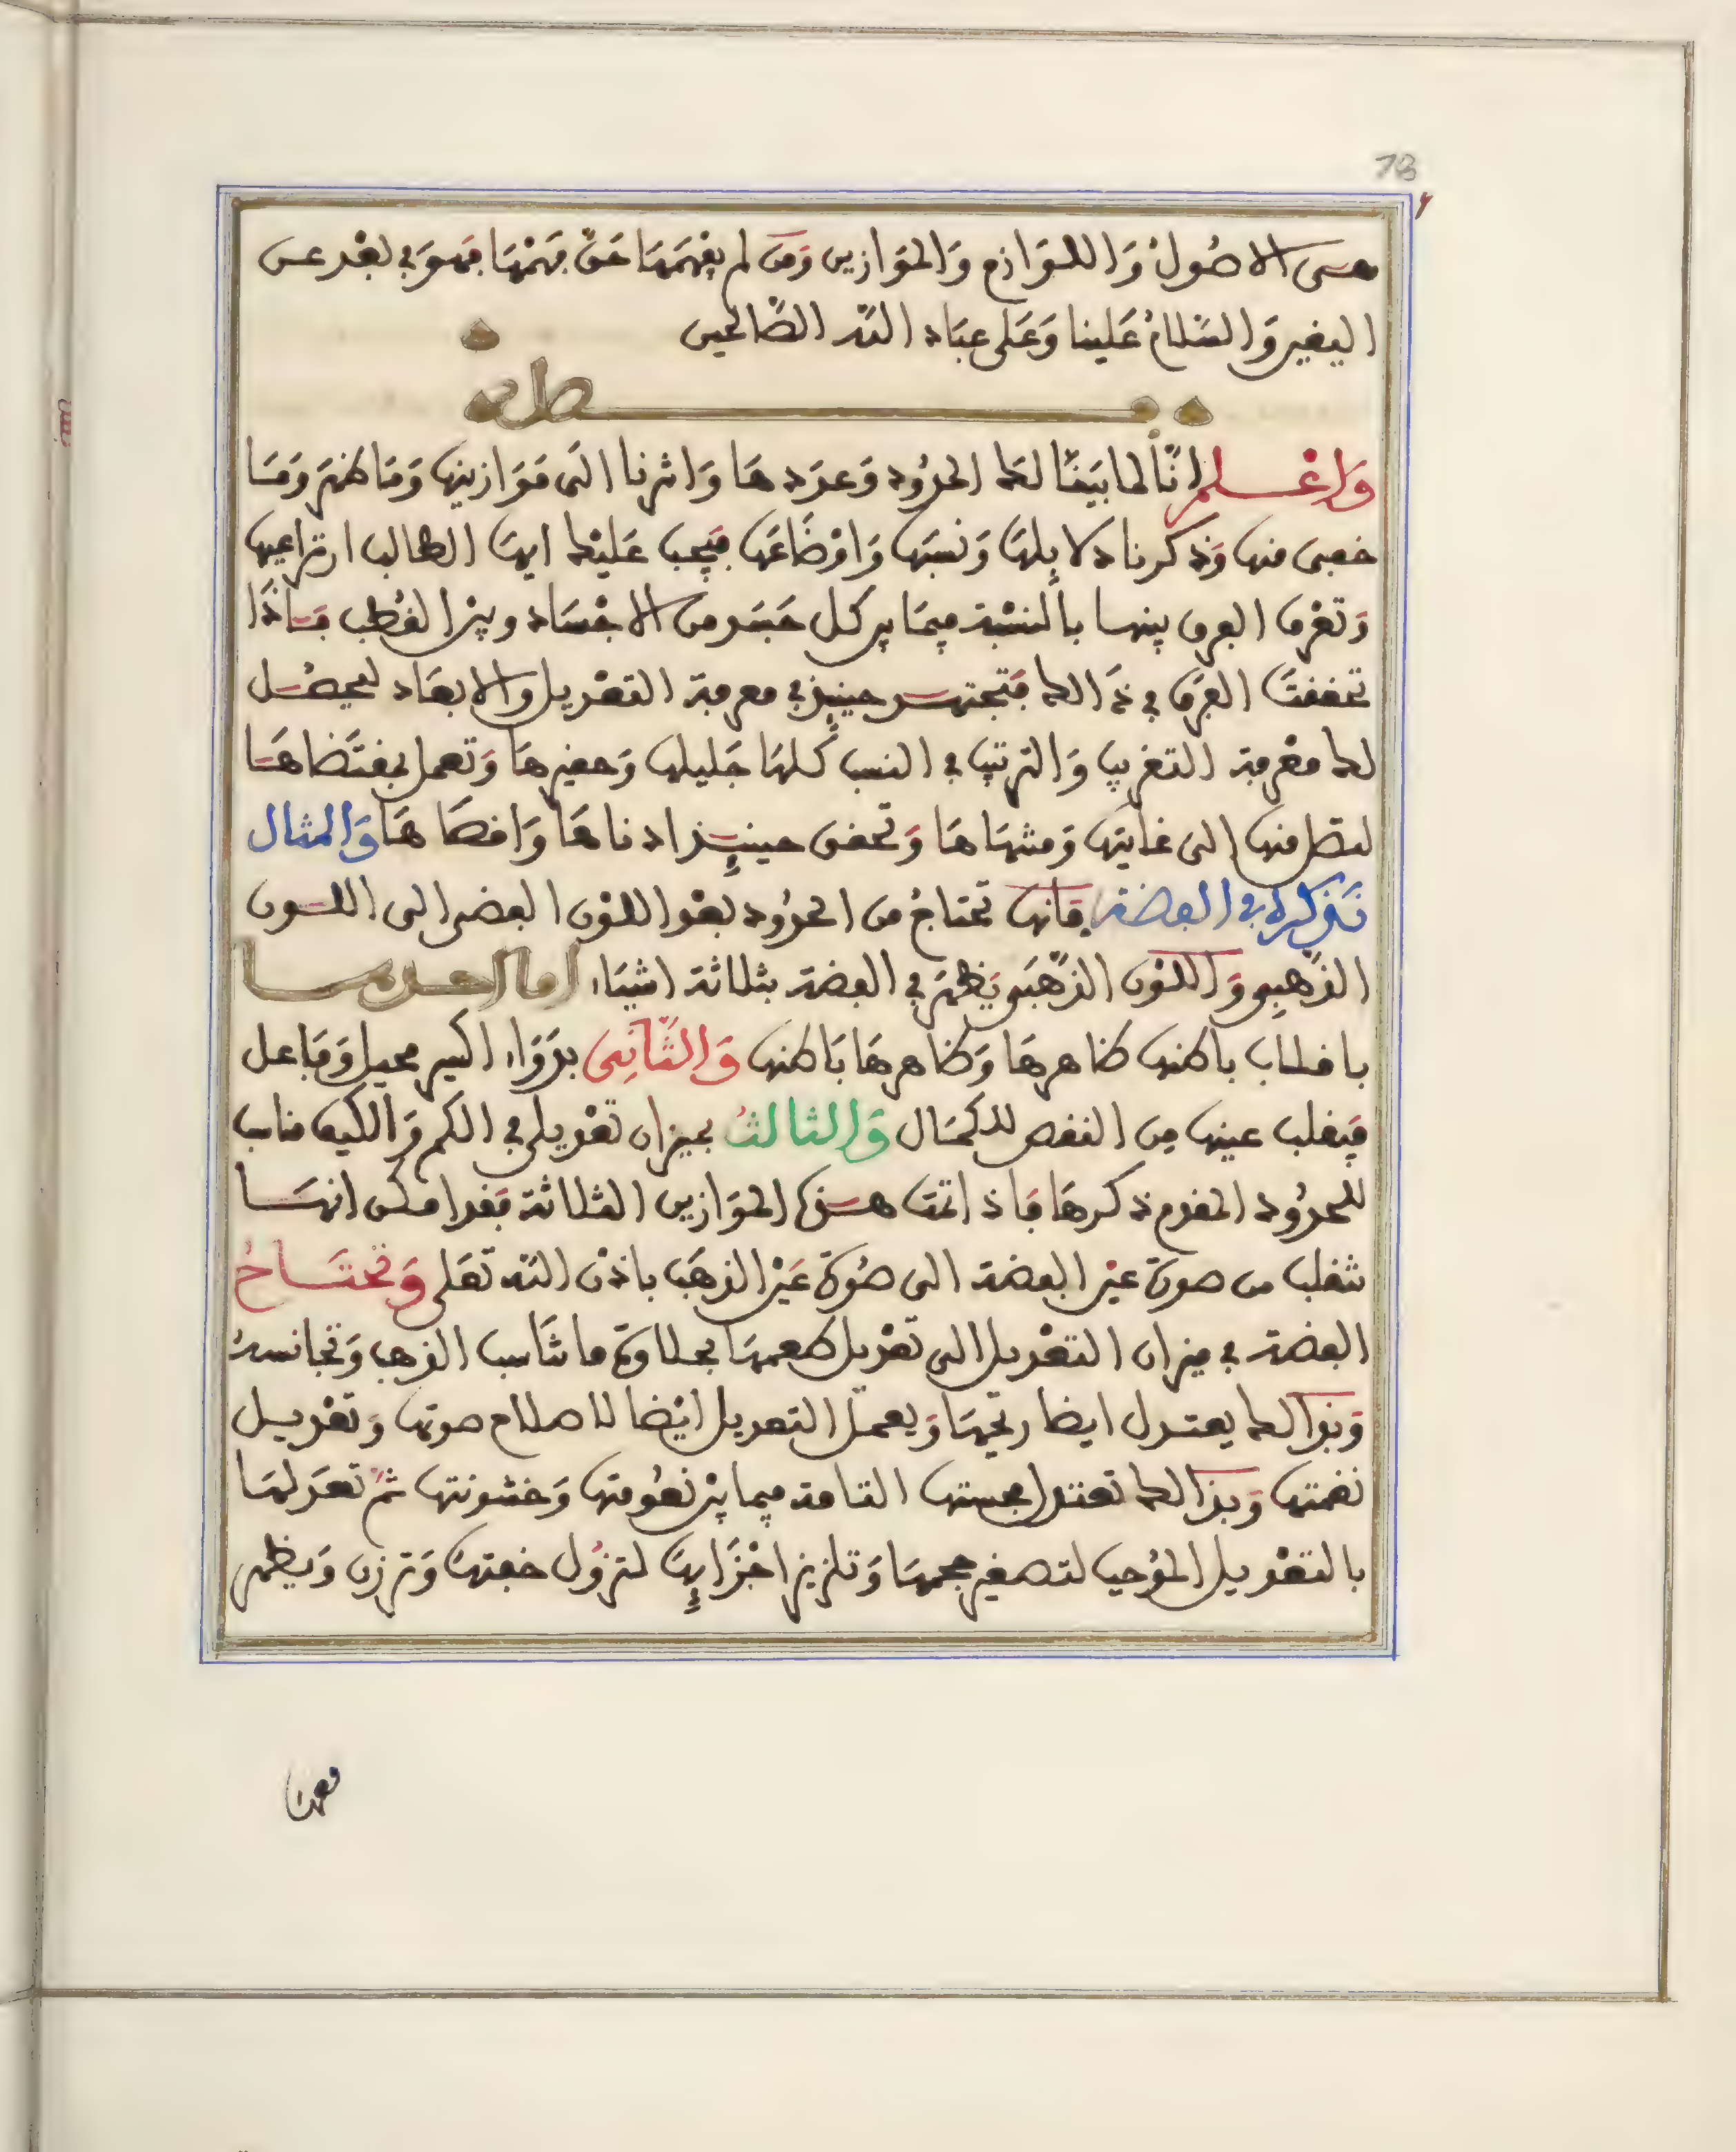 78
هذه الاصُولُ وَاللوَازم وَالموَازين وَمَن لم يفهمهَا حَقّ فهْمهَا فهوَ في بعْد عن
اليقين وَالسّلامُ عَلينا وَعَلى عبَاد الله الصّالحين
فصل
وَاعْلم انّا لما بيَنّا لك الحدُود وَعددهَا وَاشرنا الى مَوَازينها وَمَا ظهَر وَمَا
خفى منها وَذكرنا دلايلهَا وَنسَبهَا وَاوْضَاعَهَا فيَجب عَليْك ايهَا الطالب ان تراعيها
وَتعْرف الفرق بينها بالنسْبة فيمَا بين كل جَسَد من الاجْسَاد وبيْن القُطب فَاذَا
تحققتَ الفرَق في ذَالك فَتجتهد حينيذ في معرفة التعْديل والابعَاد ليحصُل
لك معْرفة التقريب وَالترتيب في النسب كلهَا جَليلها وَحقيرهَا وَتعمل بمقتضَاهَا
لتصل منها الى غايتها وَمنتهَاهَا وَتحقق حينيذ ادناهَا وَاقصَاهَا وَالمثال
نَذكره في الفضة فَانها تحتاجُ من الحدُود بعْد اللوْن الفضي الى اللون
الذّهبي وَاللوْن الذّهَبي يَظهَر في الفضة بثلاثة اشيَاء امااحدها
بانقلاب باطنها ظاهرهَا وَظاهرهَا بَاطنها وَالثَّانِى بدَوَاء اكسير محيل وَفاعل
فيَقلب عينها من النقص للكمَال وَالثالثُ بميزان تعْديلي في الكم وَالكيف مناسب
للحدُود المقدم ذكرهَا فَاذ اتمت هذه الموَازين الثلاثة فقد امكن انهَا
تنقلب من صورة عيْن الفضة الى صُورَة عَيْن الذهَب باذْن الله تعَلى وَتحْتَاجُ
الفضة في ميزان التعْديل الى تعْديل طعمهَا بحلاوَة ما تنَاسب الذهب وَتجَانسهُ
وَبذالك يعتدل ايضا ريحَهَا وَيعمَل التعديل ايْضا لاصلاح صوتها وَتعْديل
نغمتها وَبذالك تعتدل مجستها التامة فيما بيْن نعُومتها وَخشونتها ثمّ تعدَلهَا
بالتعْديل المُوجب لتصغير حجمهَا وَتلزيز اجْزَايهَا لتزُول خفتهَا وَترزن وَيظهر